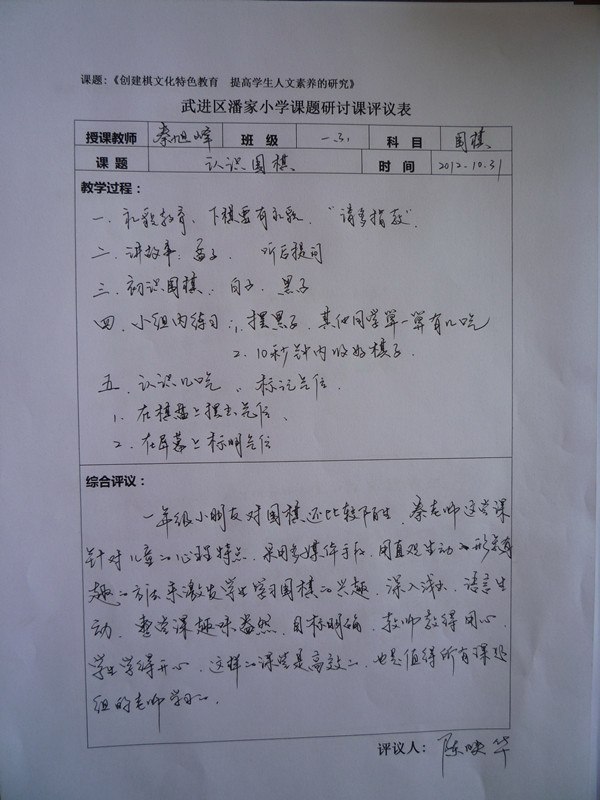 课题：《创建棋文化特色教育 提高学生人文素养的研究》
武进区潘家小学课题研讨课评议表
授课教师 秦旭峰 班 级 一.3. 科 目 围棋
课 题 认识围棋 时 间 2012.10.31
教学过程：
一. 礼貌教育、下棋要有礼貌. “请多指教”.
二. 讲故事: 孟子. 听后提问
三. 初识围棋. 白子. 黑子
四. 小组内练习: 1. 摆黑子. 其他同学算一算有几吃
2. 10秒钟内收好棋子.
五. 认识几吃 . 标记气位.
1. 在棋盘上摆出气位.
2. 在屏幕上标明气位
综合评议：
一年级小朋友对围棋还比较陌生. 秦老师这堂课
针对儿童的心理特点. 采用多媒体手段. 用直观生动的形象有
趣的方法来激发学生学习围棋的兴趣. 深入浅出. 语言生
动. 整堂课趣味盎然. 目标明确. 教师教得用心.
学生学得开心. 这样的课堂是高效的. 也是值得所有课题
组的老师学习的.
评议人： 陈映华